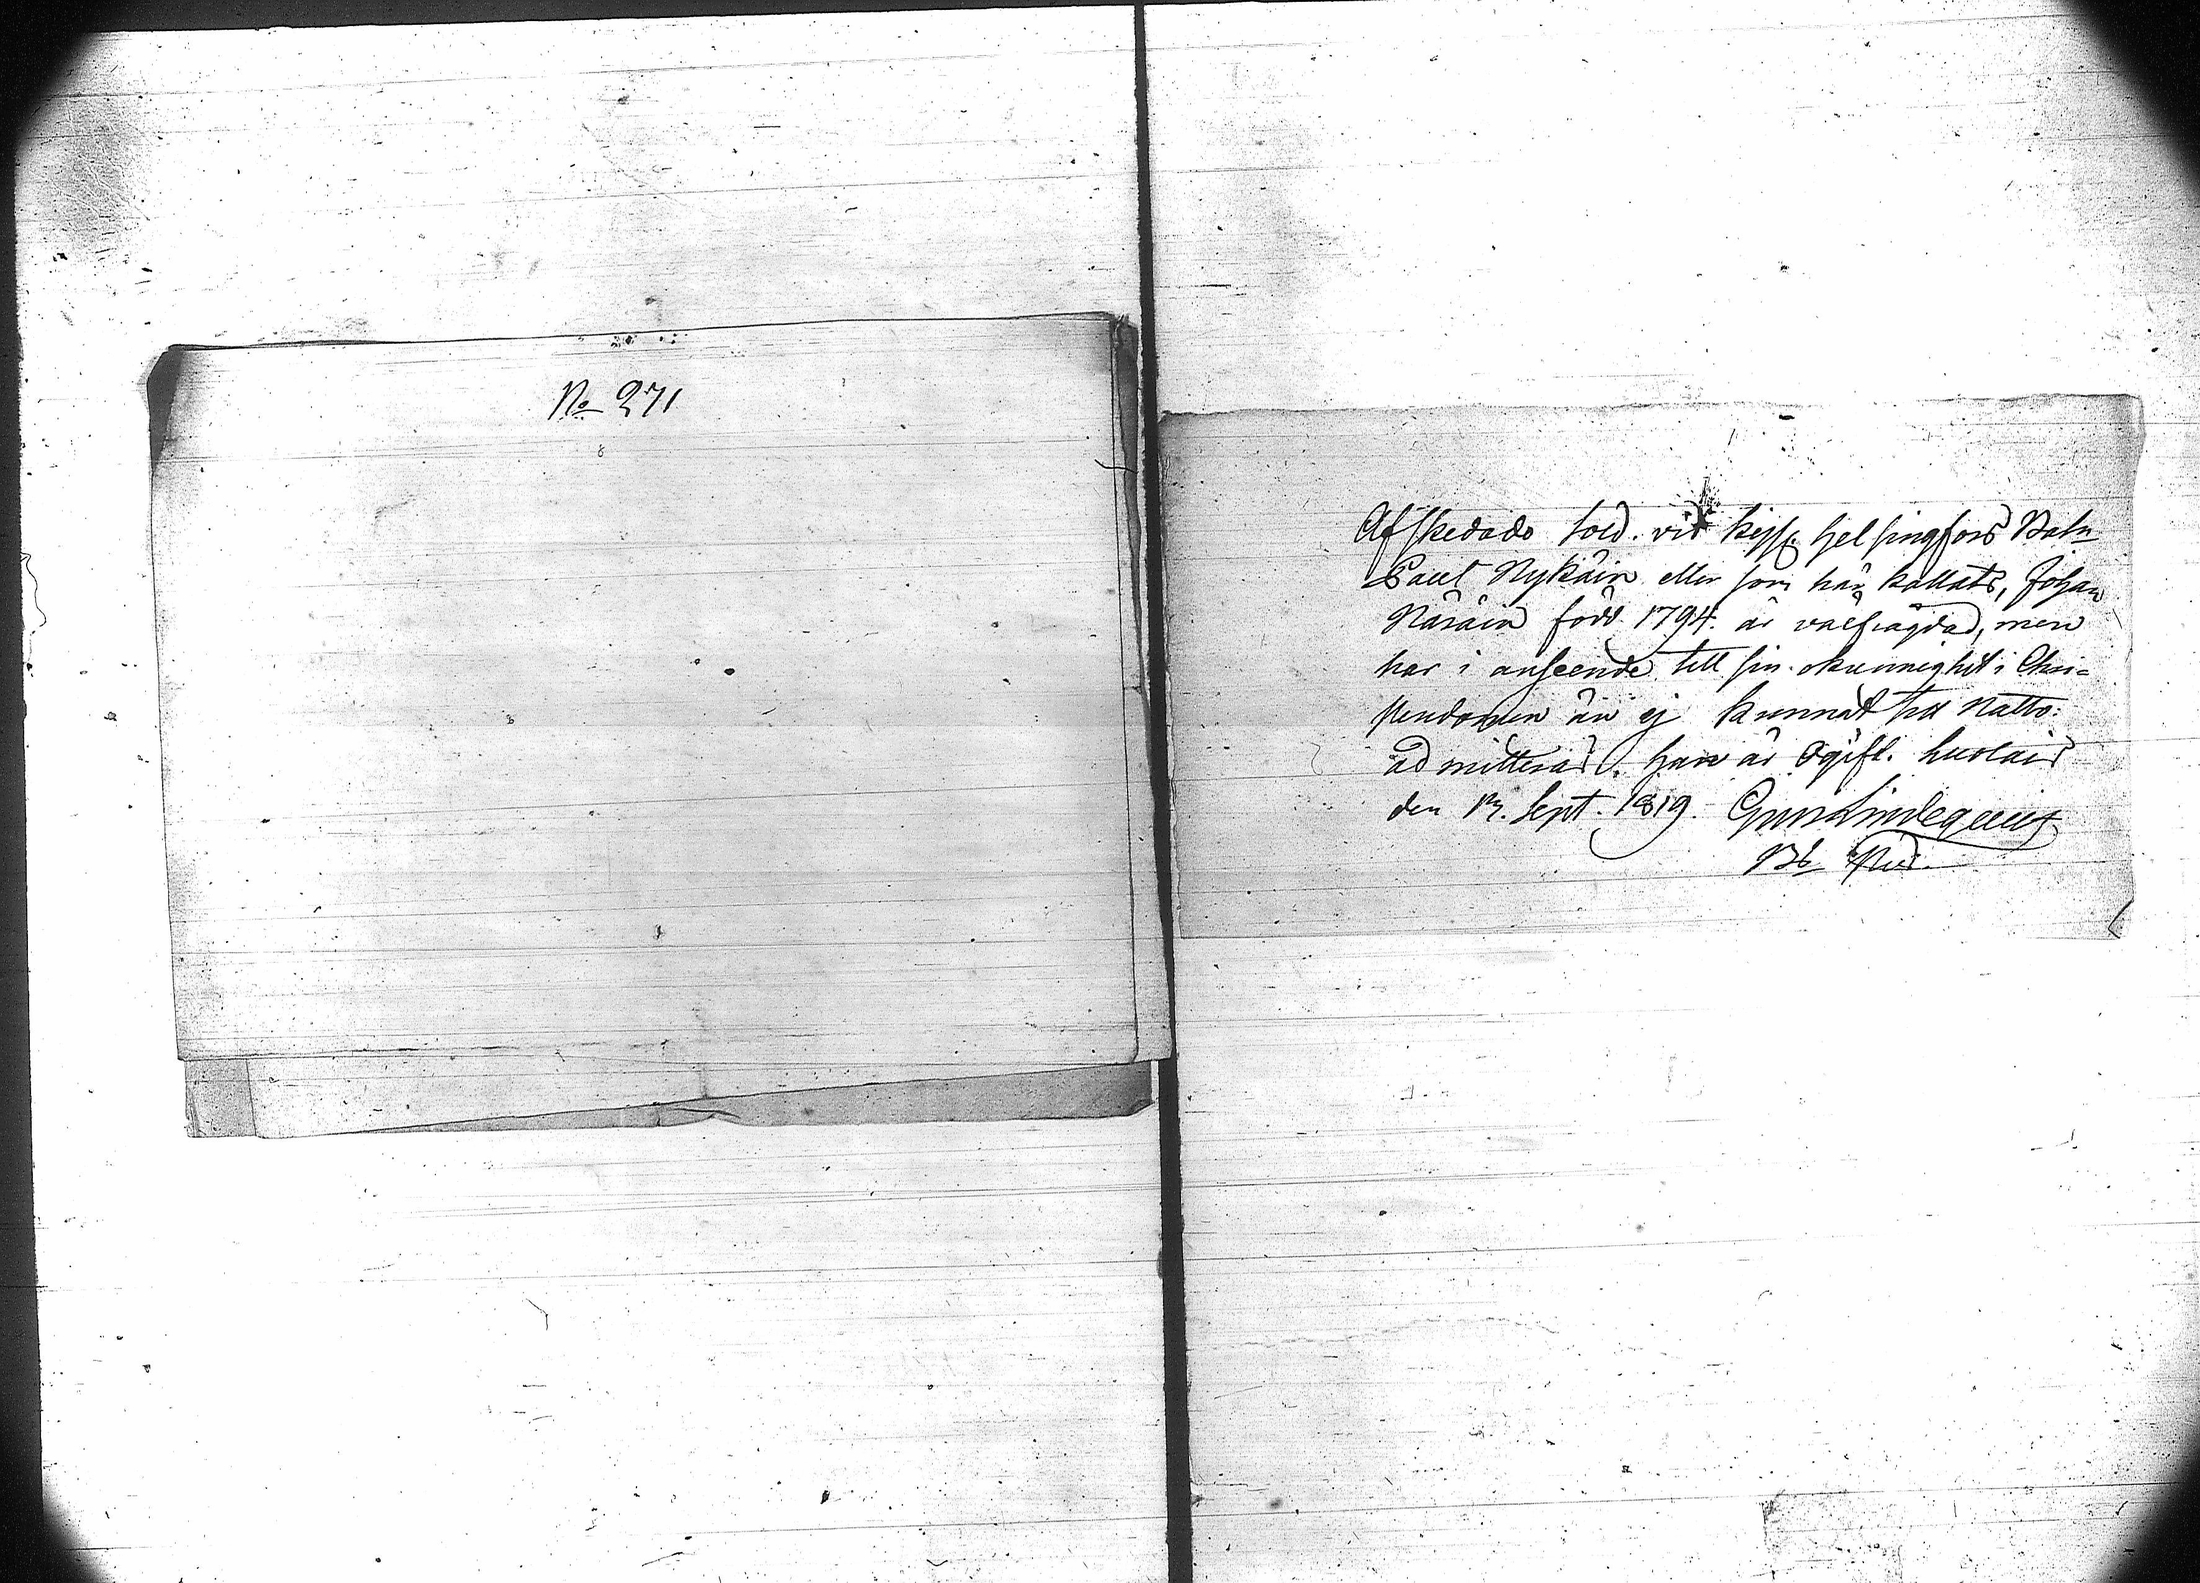 No 271
Afskedade sold. vid Kejs. Helsingfors Batn
Paul Nykäin eller som han kallats, Johan
Näräin född 1794. är välfrägdad, men
har i anseende till sin okunnighet i Chri-
stendomen än ej kunnat till Nattv:
admitteras. Han är ogift.
den 13. Sept. 1819. Lindequist